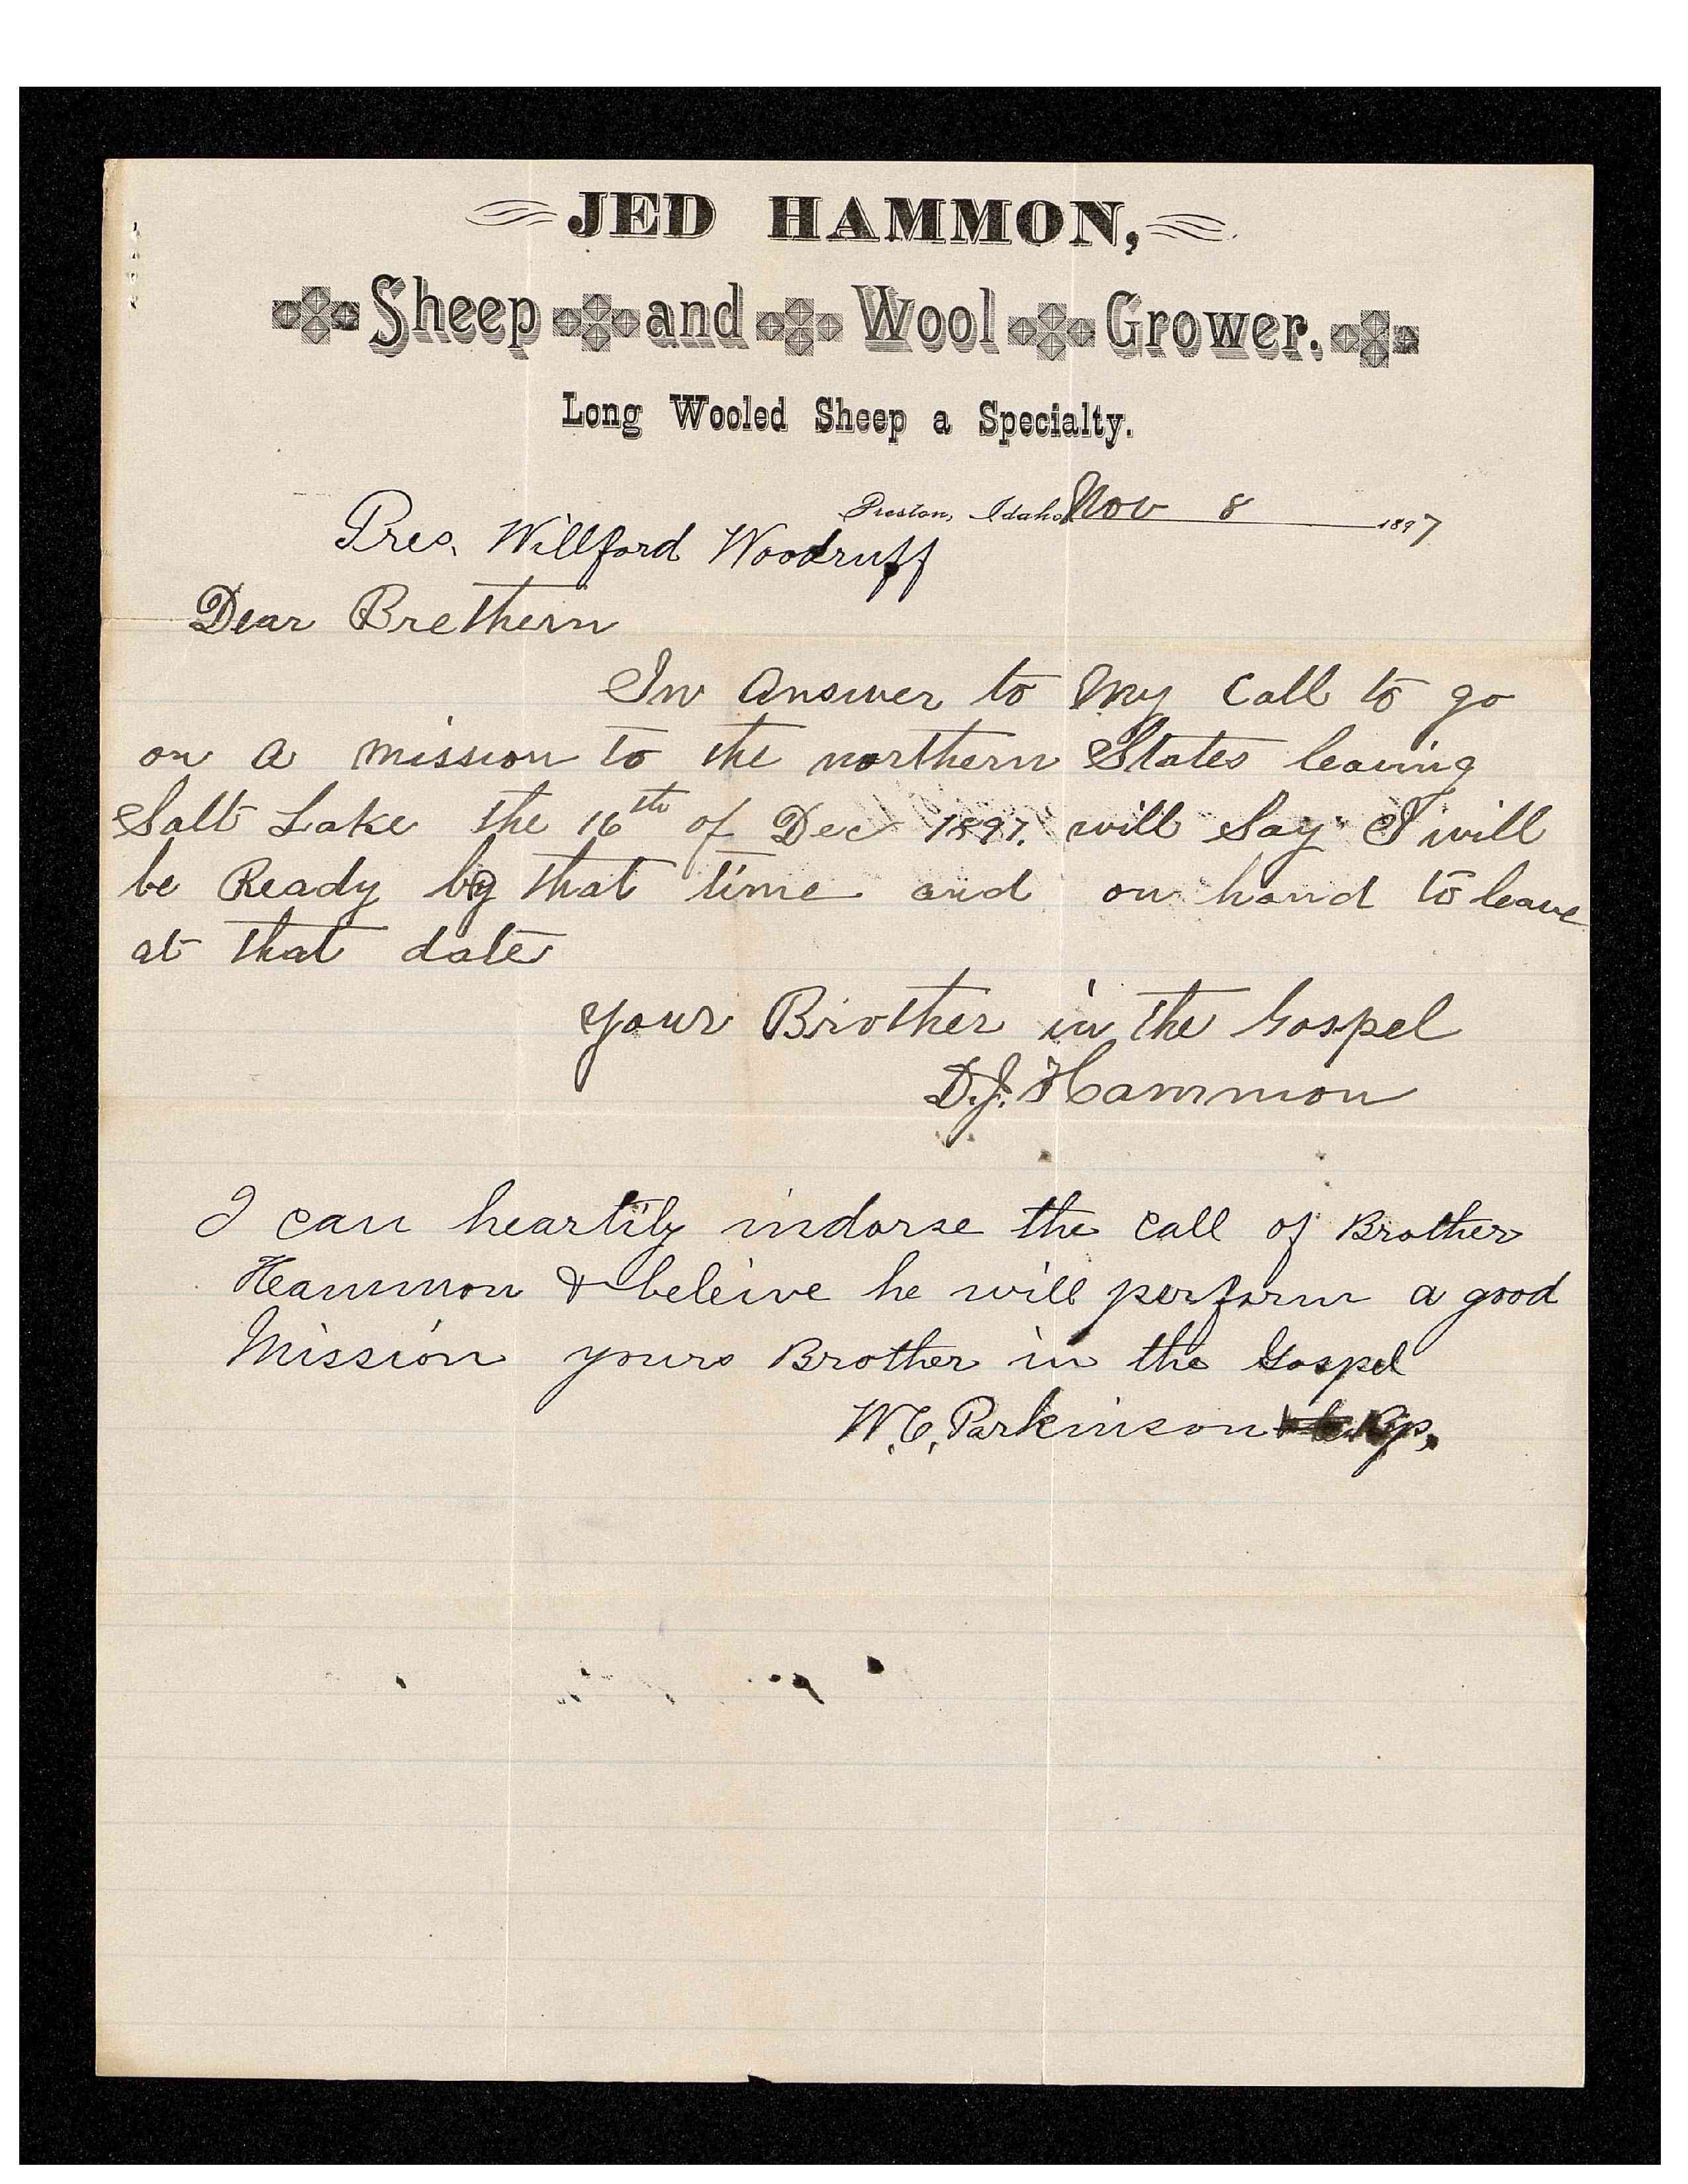 JED HAMMON,
Sheep and Wool Grower.
Long Wooled Sheep a Specialty.
Preston, Idaho Nov 8 1897
Pres. Willford Woodruff
Dear Brethern
In Answer to My Call to go
on a mission to the northern States leaving
Salt Lake the 16th of Dec 1897. will Say I will
be Ready by that time and on hand to leave
at that date
your Brother in the Gospel
D.J. Hammon
I can heartily indorse the call of Brother
Heammon & beleive he will perform a good
Mission yours Brother in the Gospel
W.C. Parkinson Bp.